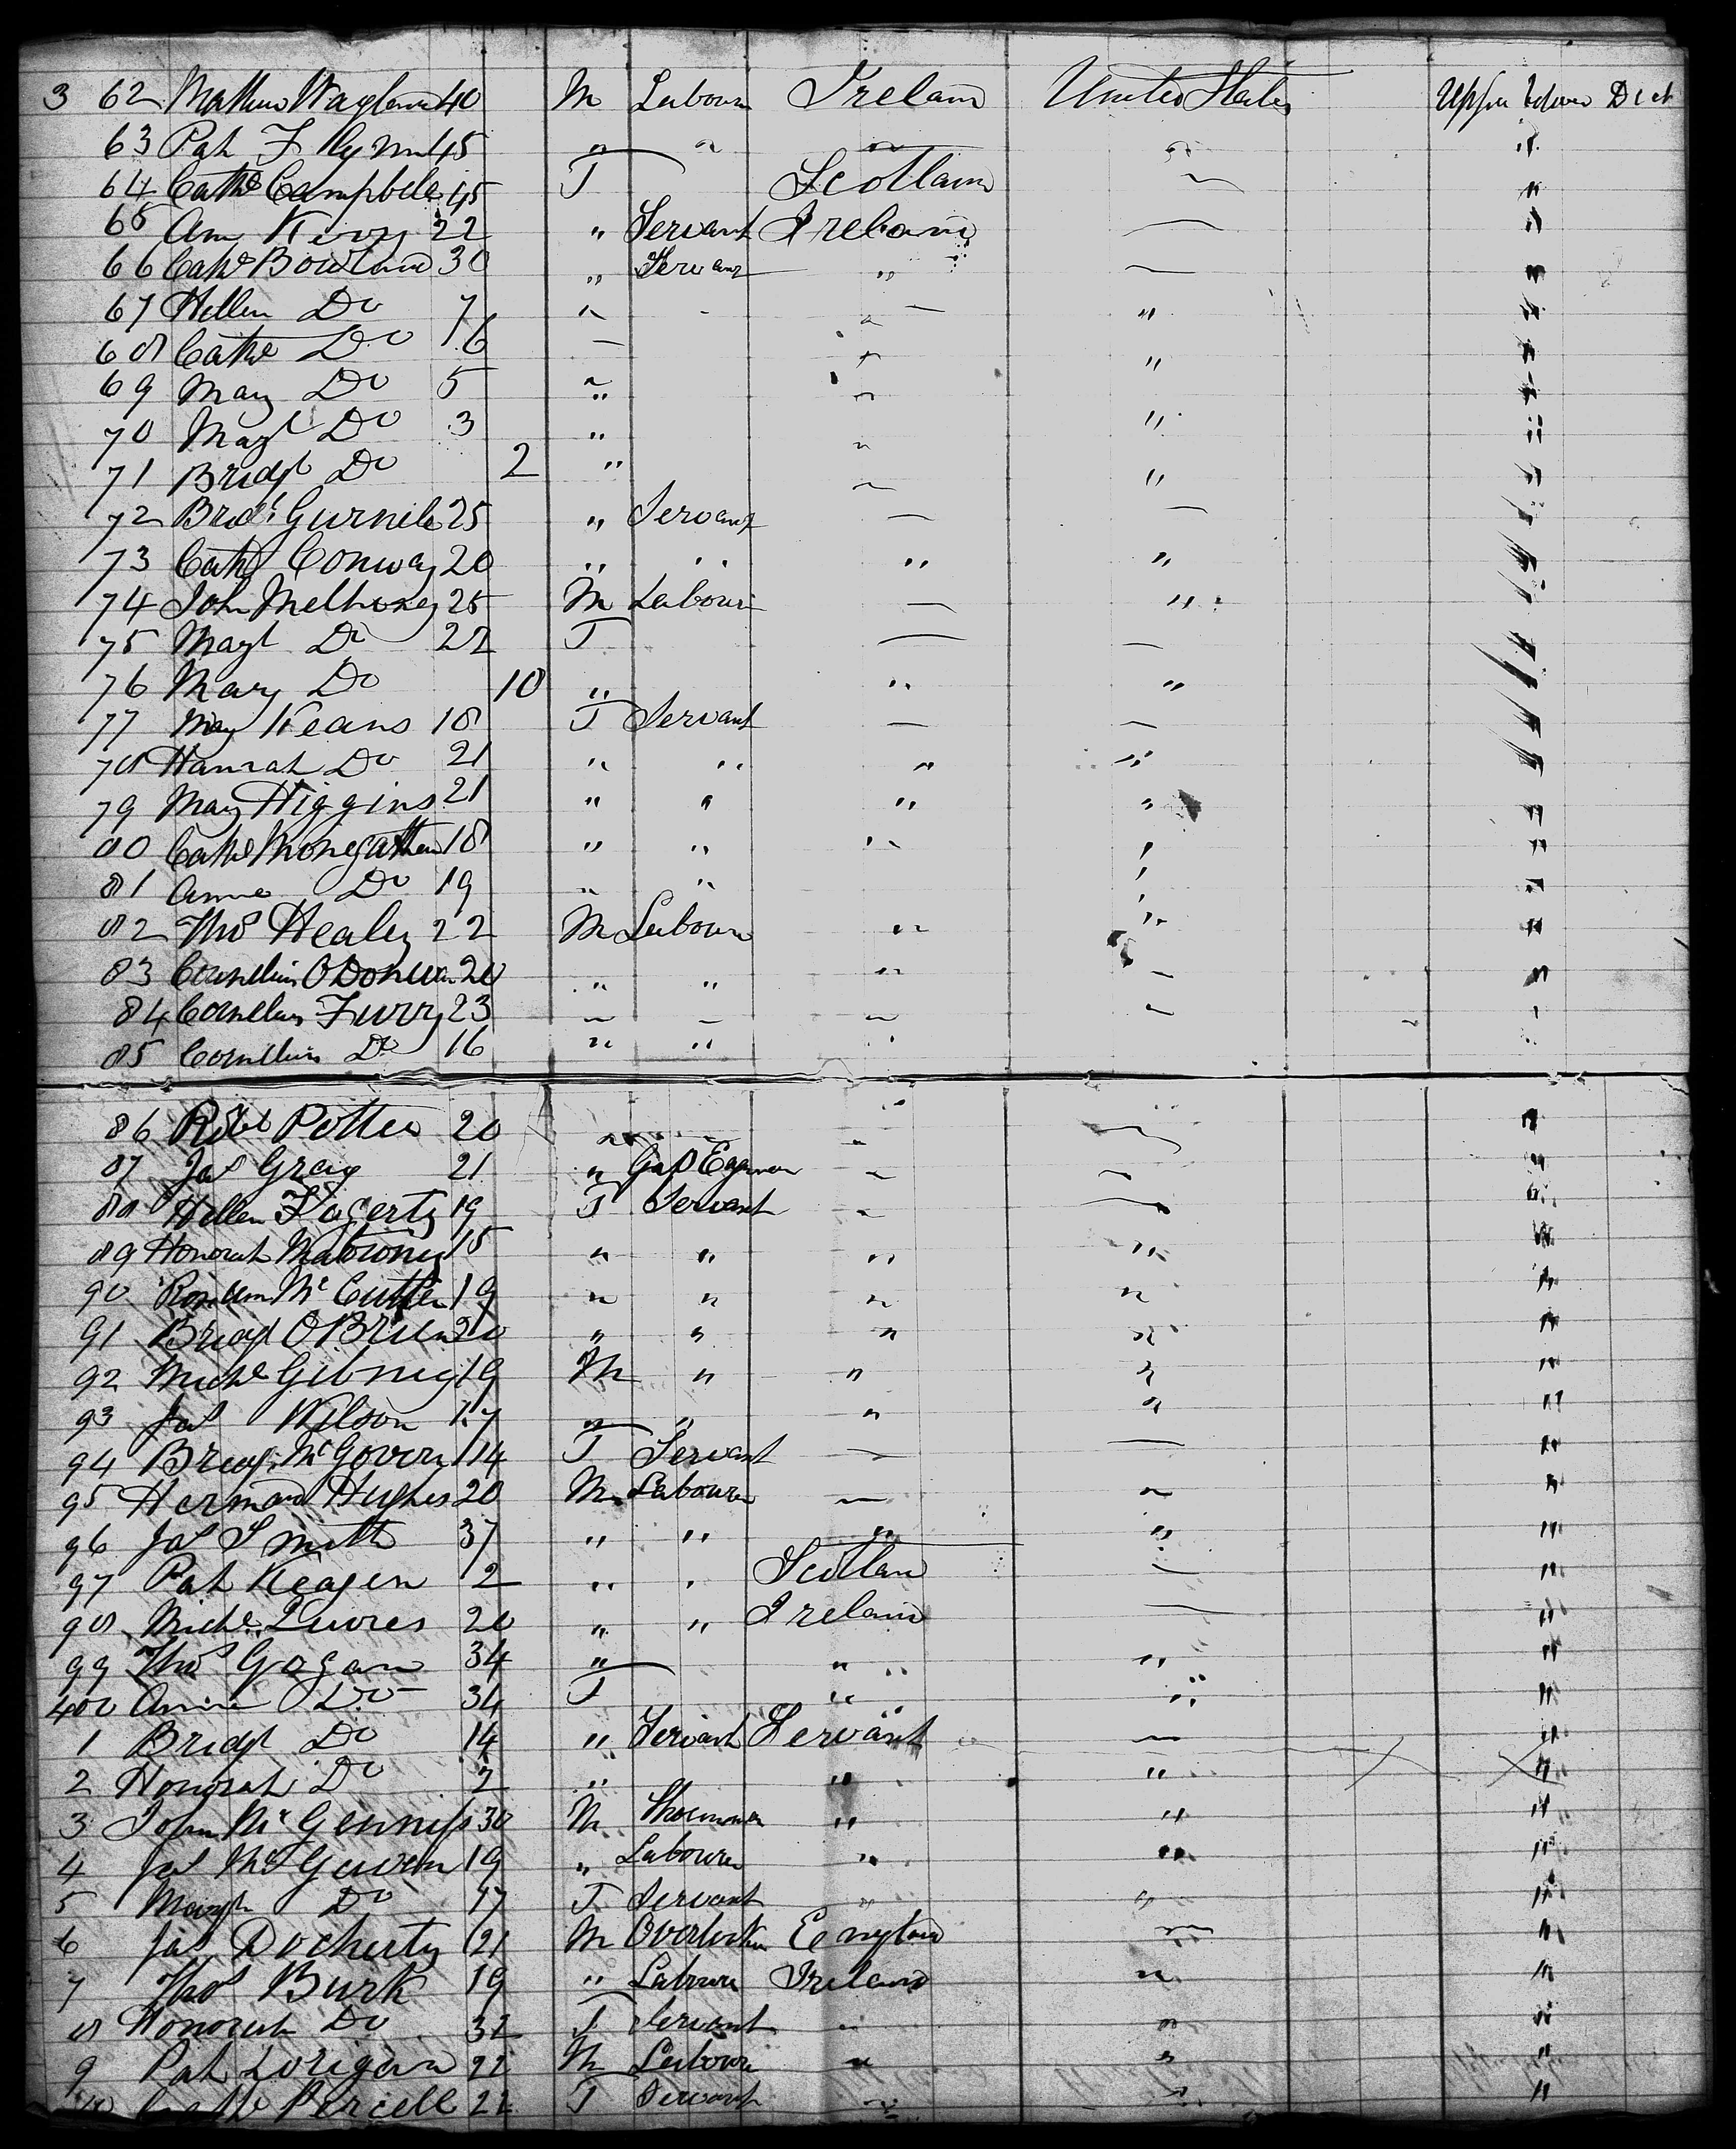 3 62 40 M Labour Ireland United States Upper Between Deck
63 Pat Flynn 45 " " " " "
64 Cathe Campbele 45 F Scotland "
65 Ann 22 " Servant Ireland "
66 Cathe Bowland 30 " Servant " "
67 Hellen Do 7 " " " "
68 Cathe Do 6 " " "
69 Mary Do 5 " " "
70 Magt Do 3 " " " "
71 Bridgt Do 2 " " " "
72 Bridt Gurnele 25 " Servant "
73 Cathe Conway 20 " " " " "
74 John 25 M Labour " "
75 Magt Do 22 F "
76 Mary Do 10 " " " "
77 May Keans 18 F Servant "
78 Hannah Do 21 " " " " "
79 Mary Higgins 21 " " " " "
80 Cathe 18 " " " " "
81 Anne Do 19 " " " "
82 Thos Healey 22 M Labour " " "
83 Cornelius O Donevan 20 " " " "
84 Cornelius Furry 23 " " " "
85 Cornelius Do 16 " " "
86 Robt Potter 20 " " "
87 Jas Gray 21 " "
88 Hellen Fogerty 19 F Servant "
89 Honorah 15 " " " " "
90 Rose Ann Mc 19 " " " " "
91 Bridgt O Brien 20 " " " " "
92 Miche Gibney 19 M " " " "
93 Jas Wilson 17 " " " " "
94 Bridgt Mc Govern 14 F Servant "
95 Hermand Hughes 20 M Labourer "
96 Jas Smith 37 " " " " "
97 Pat Keagen 2 " " Scotland "
98 Miche 20 " " Ireland "
99 Thos Gogan 34 " " " "
400 Annie Do 34 F " " "
1 Bridgt Do 14 " Servant Servant "
2 Honorah Do 2 " " " "
3 John Mc Genniss 30 M " " "
4 Jas Mc Gavern 19 " Labourer " " "
5 Margt Do 17 F Servant " " "
6 Jas Docherty 21 M Overlooker England "
7 Thos Burk 19 " Labour Ireland " "
8 Honorah Do 32 F Servant " " "
9 Pat Lorigan 22 M Labour " " "
10 Cathe Percell 22 F Servant "